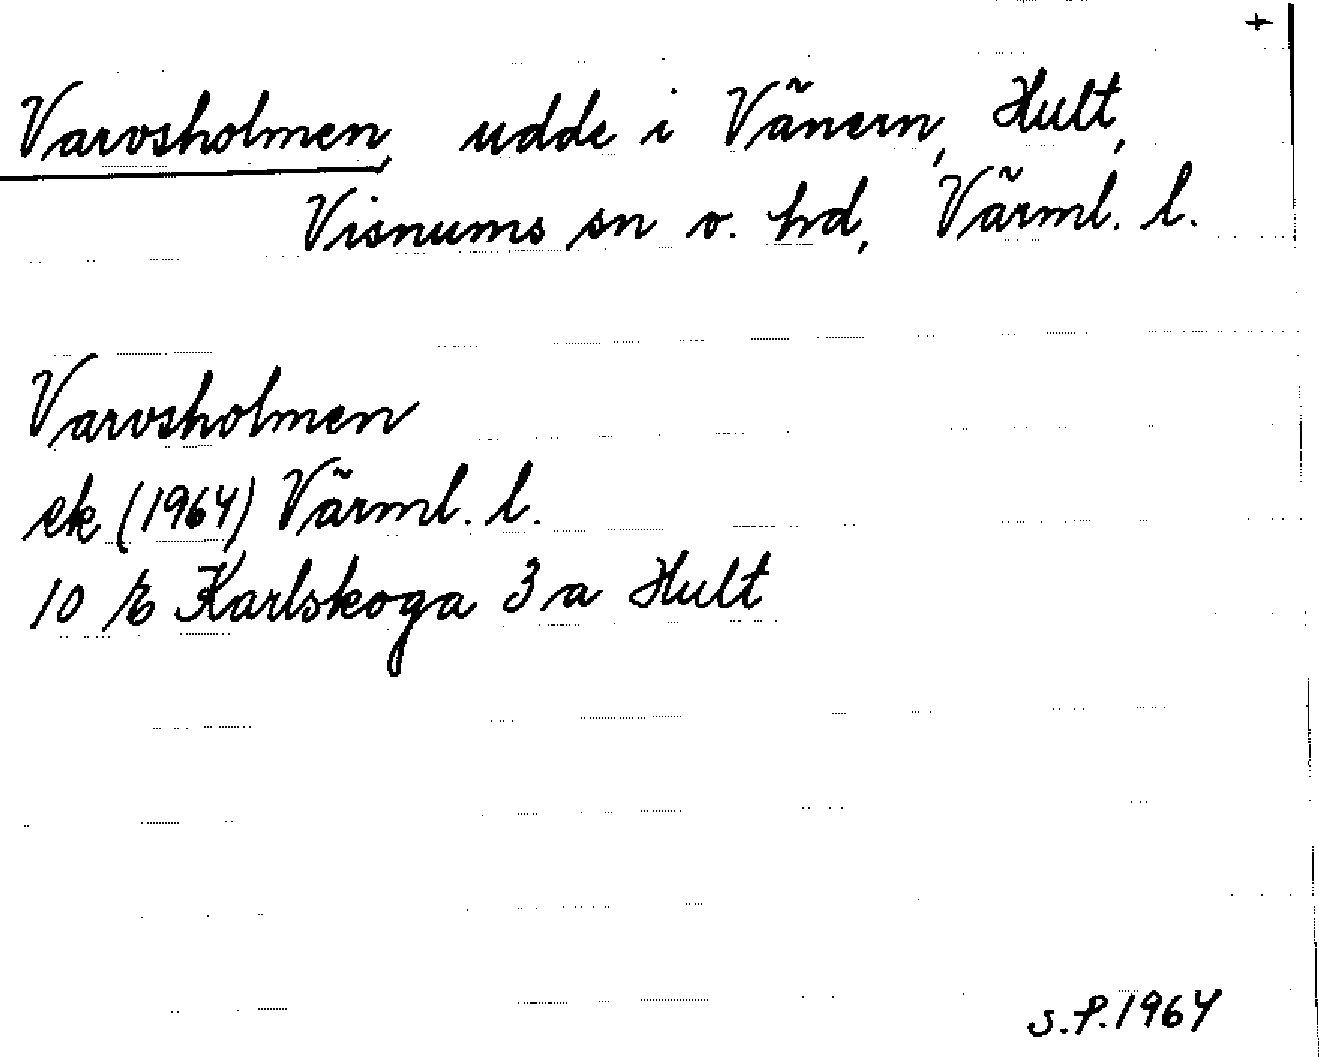 +
Varvsholmen, udde i Vänern, Hult,
Visnums sn o. hd, Värml. l.
Varvsholmen
ek (1964) Värml. l.
10 E Karlskoga 3 a Hult
S.P. 1964